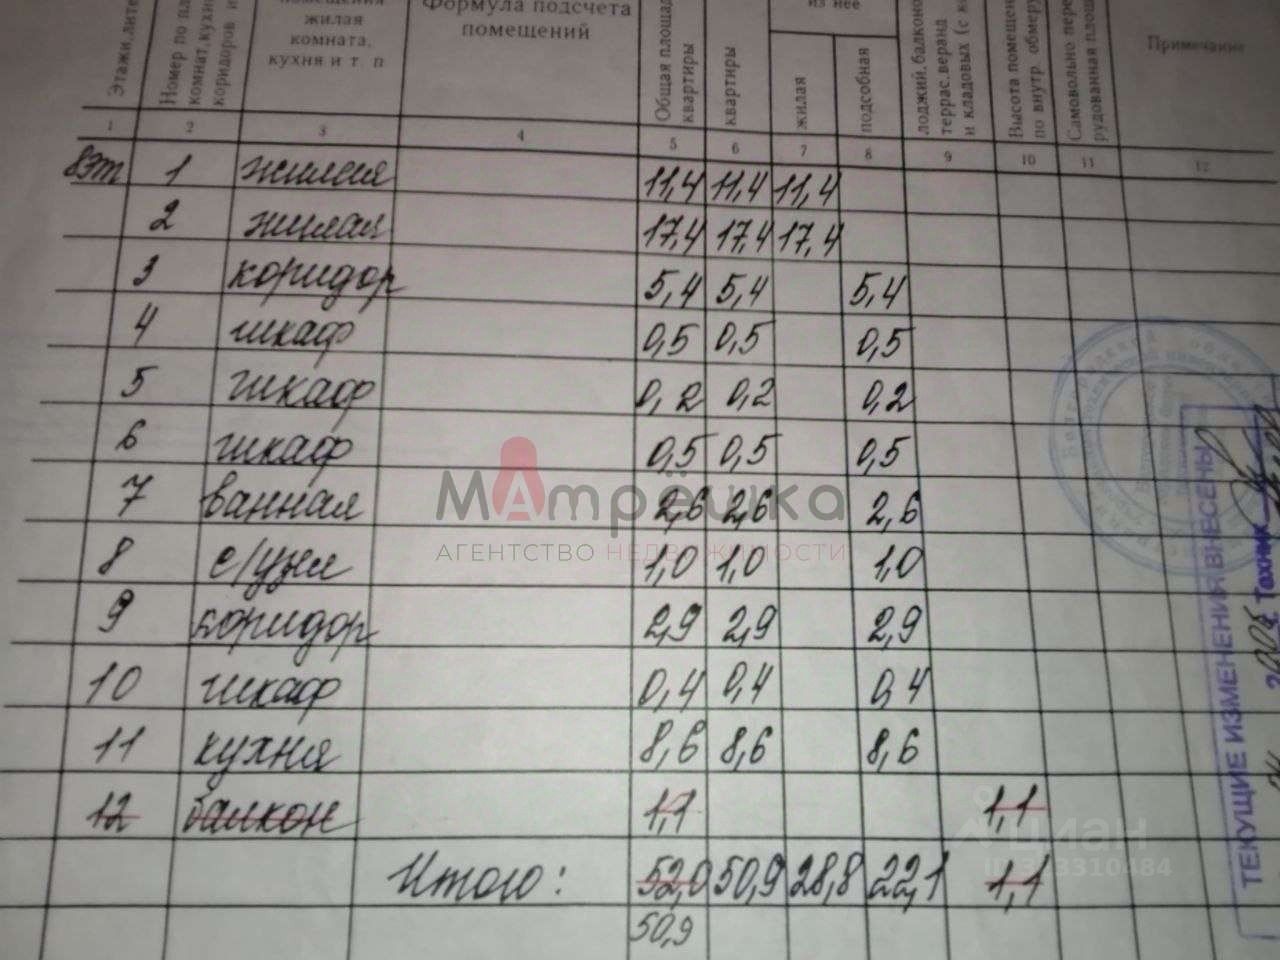 Этажи, лите
Номер по пл
комнат, кухн
коридоров и
жилая
комната,
кухня и т. п
Формула подсчета
помещений
Общая площад
квартиры
квартиры
из нее
жилая
подсобная
лоджий, балконо
террас, веранд
и кладовых (с к
Высота помещен
по внутр. обмеру
Самовольно пере
рудованная площ
Примечание
1 2 3 4 5 6 7 8 9 10 11 12
8эт 1 жилая 11,4 11,4 11,4
2 жилая 17,4 17,4 17,4
3 коридор 5,4 5,4 5,4
4 шкаф 0,5 0,5 0,5
5 шкаф 0,2 0,2 0,2
6 шкаф 0,5 0,5 0,5
7 ванная 2,6 2,6 2,6
8 с/узел 1,0 1,0 1,0
9 коридор 2,9 2,9 2,9
10 шкаф 0,4 0,4 0,4
11 кухня 8,6 8,6 8,6
12 балкон 1,1 1,1
Итого: 52,0 50,9 28,8 22,1 1,1
50,9
МАтрёшка
АГЕНТСТВО НЕДВИЖИМОСТИ
циан
ТЕКУЩИЕ ИЗМЕНЕНИЯ ВНЕСЕНЫ
Техник